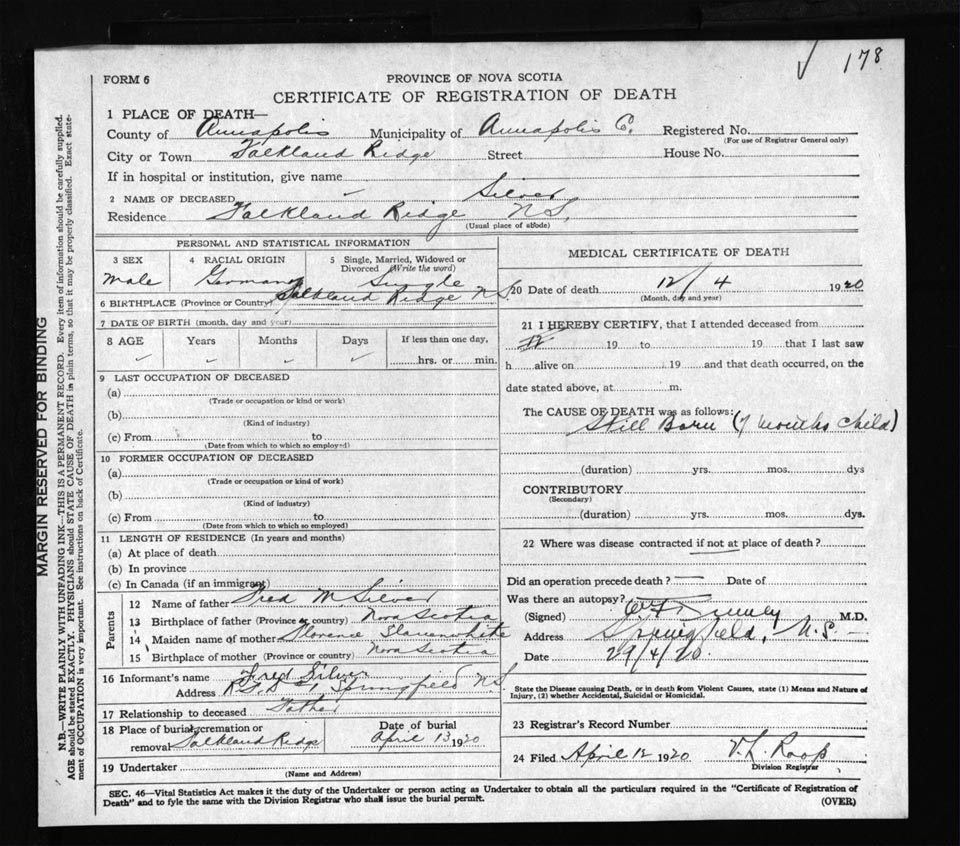 178
FORM 6
PROVINCE OF NOVA SCOTIA
CERTIFICATE OF REGISTRATION OF DEATH
1 PLACE OF DEATH—
County of Annapolis Municipality of Annapolis Co. Registered No.
(For use of Registrar General only)
City or Town Falkland Ridge Street House No.
If in hospital or institution, give name
2 NAME OF DECEASED Silver
Residence Falkland Ridge N.S.
(Usual place of abode)
PERSONAL AND STATISTICAL INFORMATION
3 SEX 4 RACIAL ORIGIN 5 Single, Married, Widowed or Divorced (Write the word)
Male German Single
6 BIRTHPLACE (Province or Country) Falkland Ridge N.S.
7 DATE OF BIRTH (month, day and year)
8 AGE Years Months Days If less than one day,
hrs. or min.
9 LAST OCCUPATION OF DECEASED
(a)
(Trade or occupation or kind or work)
(b)
(Kind of industry)
(c) From to
(Date from which to which so employed)
10 FORMER OCCUPATION OF DECEASED
(a)
(Trade or occupation or kind of work)
(b)
(Kind of industry)
(c) From to
(Date from which to which so employed)
11 LENGTH OF RESIDENCE (In years and months)
(a) At place of death
(b) In province
(c) In Canada (if an immigrant)
Parents
12 Name of father Fred M. Silver
13 Birthplace of father (Province or country) Nova Scotia
14 Maiden name of mother Florence Slauenwhite
15 Birthplace of mother (Province or country) Nova Scotia
16 Informant's name Fred Silver
Address Springfield N.S.
17 Relationship to deceased Father
18 Place of burial, cremation or removal Falkland Ridge
Date of burial
April 13 1920
19 Undertaker
(Name and Address)
MEDICAL CERTIFICATE OF DEATH
20 Date of death 12/4 1920
(Month, day and year)
21 I HEREBY CERTIFY, that I attended deceased from
19 to 19 that I last saw
h alive on 19 and that death occurred, on the
date stated above, at m.
The CAUSE OF DEATH was as follows:
Still Born (7 months child)
(duration) yrs. mos. dys
CONTRIBUTORY
(Secondary)
(duration) yrs. mos. dys.
22 Where was disease contracted if not at place of death?
Did an operation precede death? — Date of
Was there an autopsy?
(Signed) M.D.
Address Springfield, N.S.
Date 29/4/20.
State the Disease causing Death, or in death from Violent Causes, state (1) Means and Nature of
Injury, (2) whether Accidental, Suicidal or Homicidal.
23 Registrar's Record Number
24 Filed April 12 1920 V. L. Roop
Division Registrar
SEC. 46—Vital Statistics Act makes it the duty of the Undertaker or person acting as Undertaker to obtain all the particulars required in the "Certificate of Registration of
Death" and to fyle the same with the Division Registrar who shall issue the burial permit.
(OVER)
MARGIN RESERVED FOR BINDING
N.B.—WRITE PLAINLY WITH UNFADING INK—THIS IS A PERMANENT RECORD. Every item of information should be carefully supplied.
AGE should be stated EXACTLY. PHYSICIANS should STATE CAUSE OF DEATH in plain terms, so that it may be properly classified. Exact state-
ment of OCCUPATION is very important. See instructions on back of Certificate.